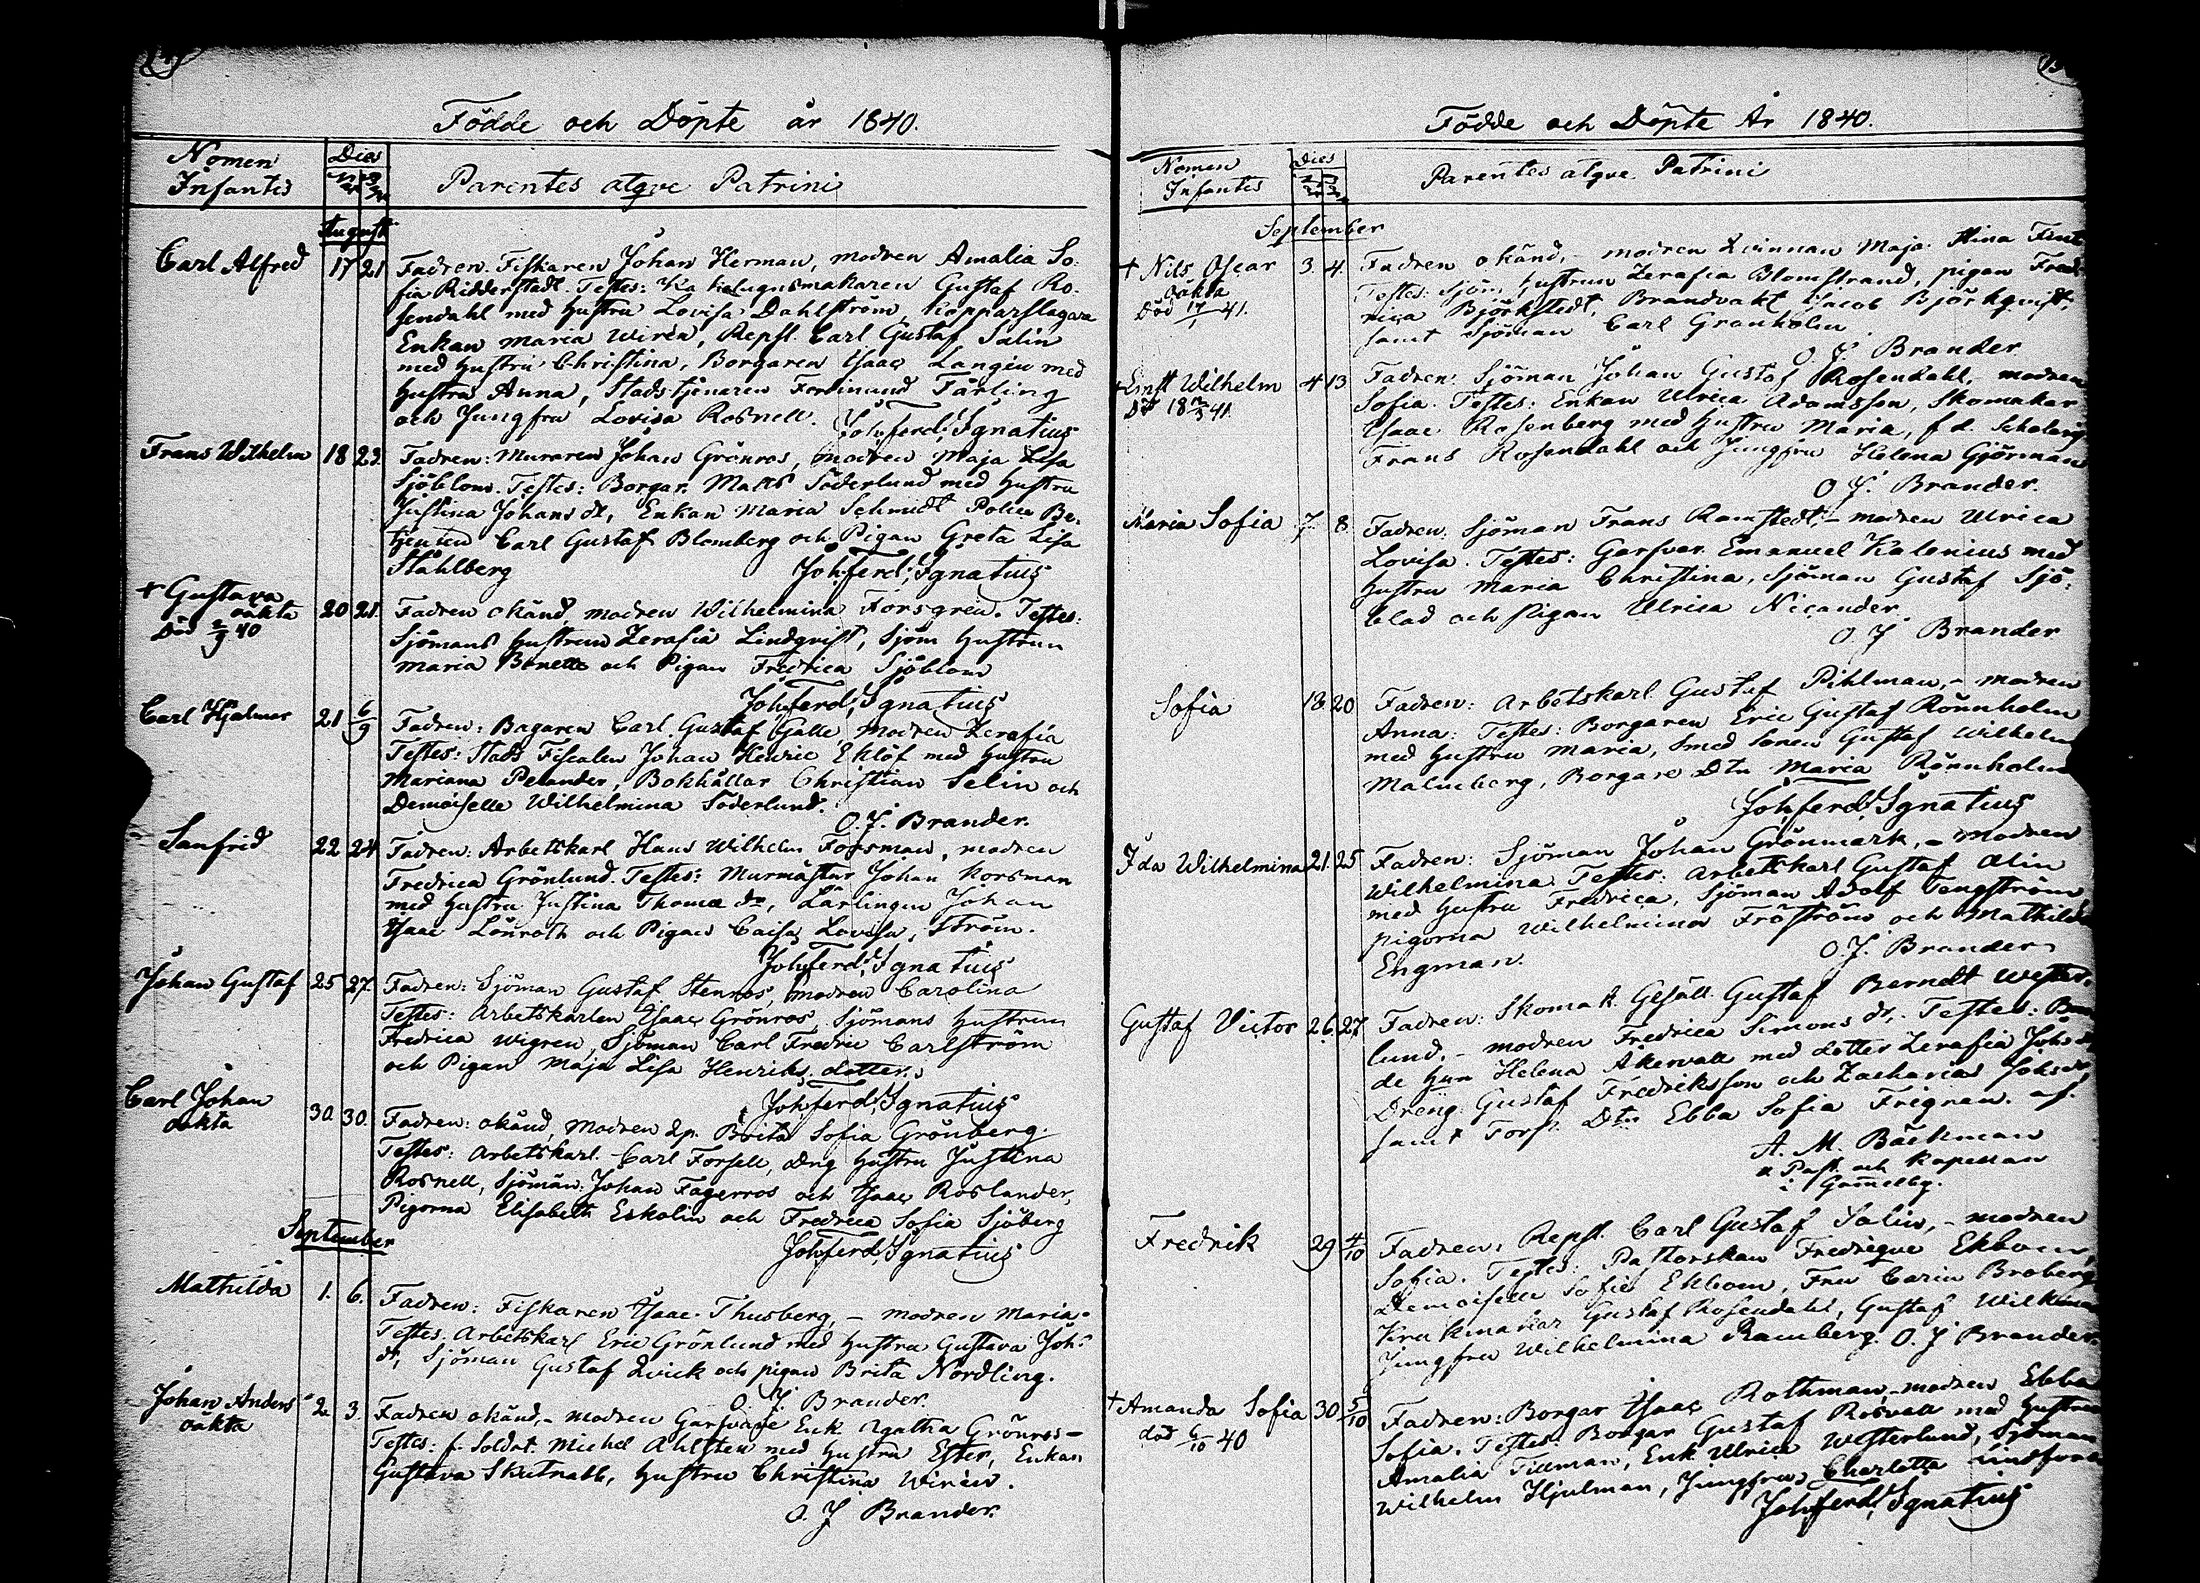 Födde och Döpte år 1840.
Nomen Infantis
Dies
Parentes atqve Patrini
August
Carl Alfred 17 21 Fadren: Fiskaren Johan Herman, modren Amalia So-
fia Ridderstadt. Testes: Kakelugnsmakaren Gustaf Ro-
sendahl med hustru Lovisa Dahlström, Kopparslagare
Enkan Maria Wirén, Repsl. Carl Gustaf Salin
med hustru Christina, Borgaren Isaac Langén med
hustru Anna, Stadstjenaren Ferdinand Tärling
och Jungfru Lovisa Rosnell. Joh. Ferd. Ignatius
Frans Wilhelm 18 23. Fadren: Muraren Johan Grönros, modren Maja Lisa
Sjöblom. Testes: Borgar. Matts Söderlund med hustru
Justina Johans dr, Enkan Maria Schmidt Police Be-
tjenten Carl Gustaf Blomberg och Pigan Greta Lisa
Ståhlberg Joh. Ferd. Ignatius
+ Gustava oäkta Död 2/9 40 20 21. Fadren okänd, modren Wilhelmina Forsgrén. Testes:
Sjömans hustrun Zerafia Lindqvist, Sjöm hustrun
Maria Bonette och Pigan Fredrica Sjöblom
Joh. Ferd. Ignatius
Carl Hjalmar 21 6/9 Fadren: Bagaren Carl Gustaf Galle, Modren Zerafia
Testes: Stads Fiscalen Johan Henric Eklöf med hustru
Mariana Pelander, Bokhållar Christian Selin och
Demoiselle Wilhelmina Söderlund.
O. J. Brander.
Sanfrid 22 24 Fadren: Arbetskarl Hans Wilhelm Forsman, modren
Fredrica Grönlund. Testes: Murmästar Johan Korsman
med hustru Justina Thomæ dr, Lärlingen Johan
Isaac Lönroth och Pigan Caisa Lovisa Ström.
Joh. Ferd. Ignatius
Johan Gustaf 25 27. Fadren: Sjöman Gustaf Stenros, modren Carolina
Testes: Arbetskarlen Isaac Grönros, Sjömans hustrun
Fredrica Wigren, Sjöman Carl Fredric Carlström
och Pigan Maja Lisa Henriks dotter.
Joh. Ferd. Ignatius
Carl Johan oäkta 30. 30. Fadren: okänd, Modren Brita Sofia Grönberg.
Testes: Arbetskarl. Carl Forsell, Dng hustru Justina
Rosnell, Sjöman Johan Fagerros och Isaac Roslander,
Pigorna Elisabeth Eskolin och Fredrica Sofia Sjöberg
Joh. Ferd. Ignatius
September
Mathilda 1. 6. Fadren: Fiskaren Isaac Thusberg, – modren Maria.
Testes. Arbetskarl Eric Grönlund med hustru Gustava Joh.
dr, Sjöman Gustaf Qvick och pigan Brita Nordling.
O. J. Brander.
Johan Anders oäkta 2. 3. Fadren okänd, – modren Garfvare Enk Agatha Grönros –
Testes: f. Soldat. Michel Ahlsten med hustru Ester, Enkan
Gustava Skutnabb, hustru Christina Wirén.
O. J Brander.
Födde och Döpte År 1840.
Nomen Infantis
Dies
Parentes atqve Patrini
September
+ Nils Oscar oäkta Död 17/1 41. 3. 4. Fadren okänd, – modren Qvinnan Maja Stina
Testes: Sjöm hustrun Zerafia Blomstrand, pigan Fred-
rica Björkstedt, Brandvakt Jacob Björkqvist,
samt Sjöman Carl Granholm
O. J. Brander
+ Ernst Wilhelm 4 13 Fadren: Sjöman Johan Gustaf Rosendahl, modren
Sofia. Testes: Enkan Ulrica Adamsson, Skomakar
Isaac Rosenberg med hustru Maria, f. d.
Frans Rosendahl och Jungfru Helena Gjörman
O J. Brander.
Maria Sofia 7. 8. Fadren: Sjöman Frans Ramstedt, – modren Ulrica
Lovisa. Testes: Garfvar. Emanuel Kalenius med
hustru Maria Christina, Sjöman Gustaf Sjö-
blad och pigan Ulrica Nicander.
O. J Brander
Sofia 13 20 Fadren: Arbetskarl Gustaf Pihlman, – modren
Anna: Testes: Borgaren Eric Gustaf Rönnholm
med hustru Maria, Smed sonen Gustaf Wilhelm
Malmberg, Borgare Dtn Maria Rönnholm
Joh. Ferd. Ignatius
Ida Wilhelmina 21. 25 Fadren: Sjöman Johan Grönmark, – Modren
Wilhelmina. Testes: Arbetskarl Gustaf Alin
med hustru Fredrica, Sjöman Adolf Tengström
pigorna Wilhelmina Fröström och Mathilda
Engman. O. J. Brander
Gustaf Victor 26. 27 Fadren: Skomak. Gesäll Gustaf Berndt Wester-
lund, – modren Fredrica Simons dr,. Testes:
de hun Helena Åkervall med dotter Zerafia Johs dr
Dreng: Gustaf Fredriksson och Zacharias Johs dr,
samt Torp. Dtn Ebba Sofia Frigren. af.
A. M. Bäckman
v Past. och Kapellan
i Gamelbg.
Fredrik 29 4/10 Fadren: Repsl. Carl Gustaf Salin, – modren
Sofia. Testes: Pastorskan Fredriqve Ekbom,
Demoiselle Sofie Ekbom, Fru Carin Broberg
Krukmakar Gustaf Rosendahl, Gustaf
Jungfru Wilhelmina Ramberg. O. J Brander.
+ Amanda Sofia död 6/10 40 30 5/10 Fadren: Borgar Isaac Rothman, modren Ebba
Sofia. Testes: Borgar Gustaf Rosvall med hustru
Amalia Tillman, Enk Ulrica Westerlund, Sjöman
Wilhelm Hjulman, Jungfru Charlotta Lindfors
Joh. Ferd. Ignatius